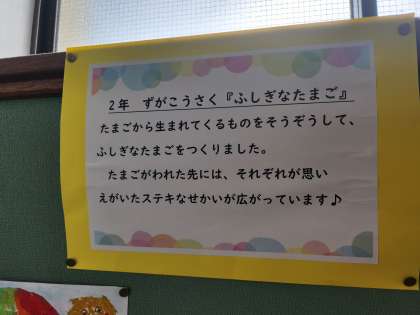 2年　ずがこうさく『ふしぎなたまご』
たまごから生まれてくるものをそうぞうして、
ふしぎなたまごをつくりました。
　たまごがわれた先には、それぞれが思い
えがいたステキなせかいが広がっています♪